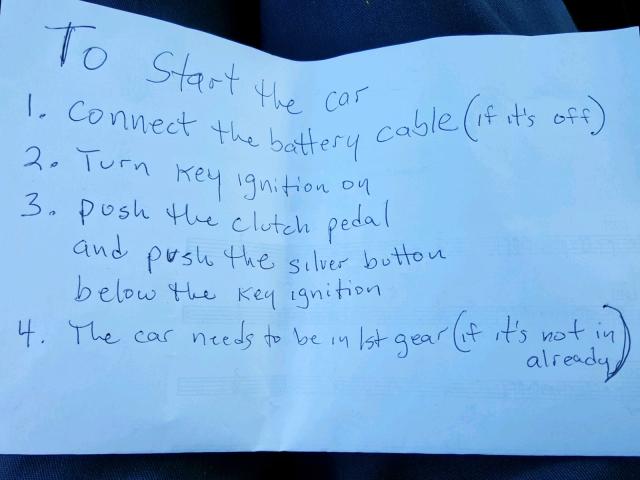 To Start the car
1. Connect the battery cable (if it's off)
2. Turn key ignition on
3. push the clutch pedal
and push the silver button
below the key ignition
4. The car needs to be in 1st gear (if it's not in
already)